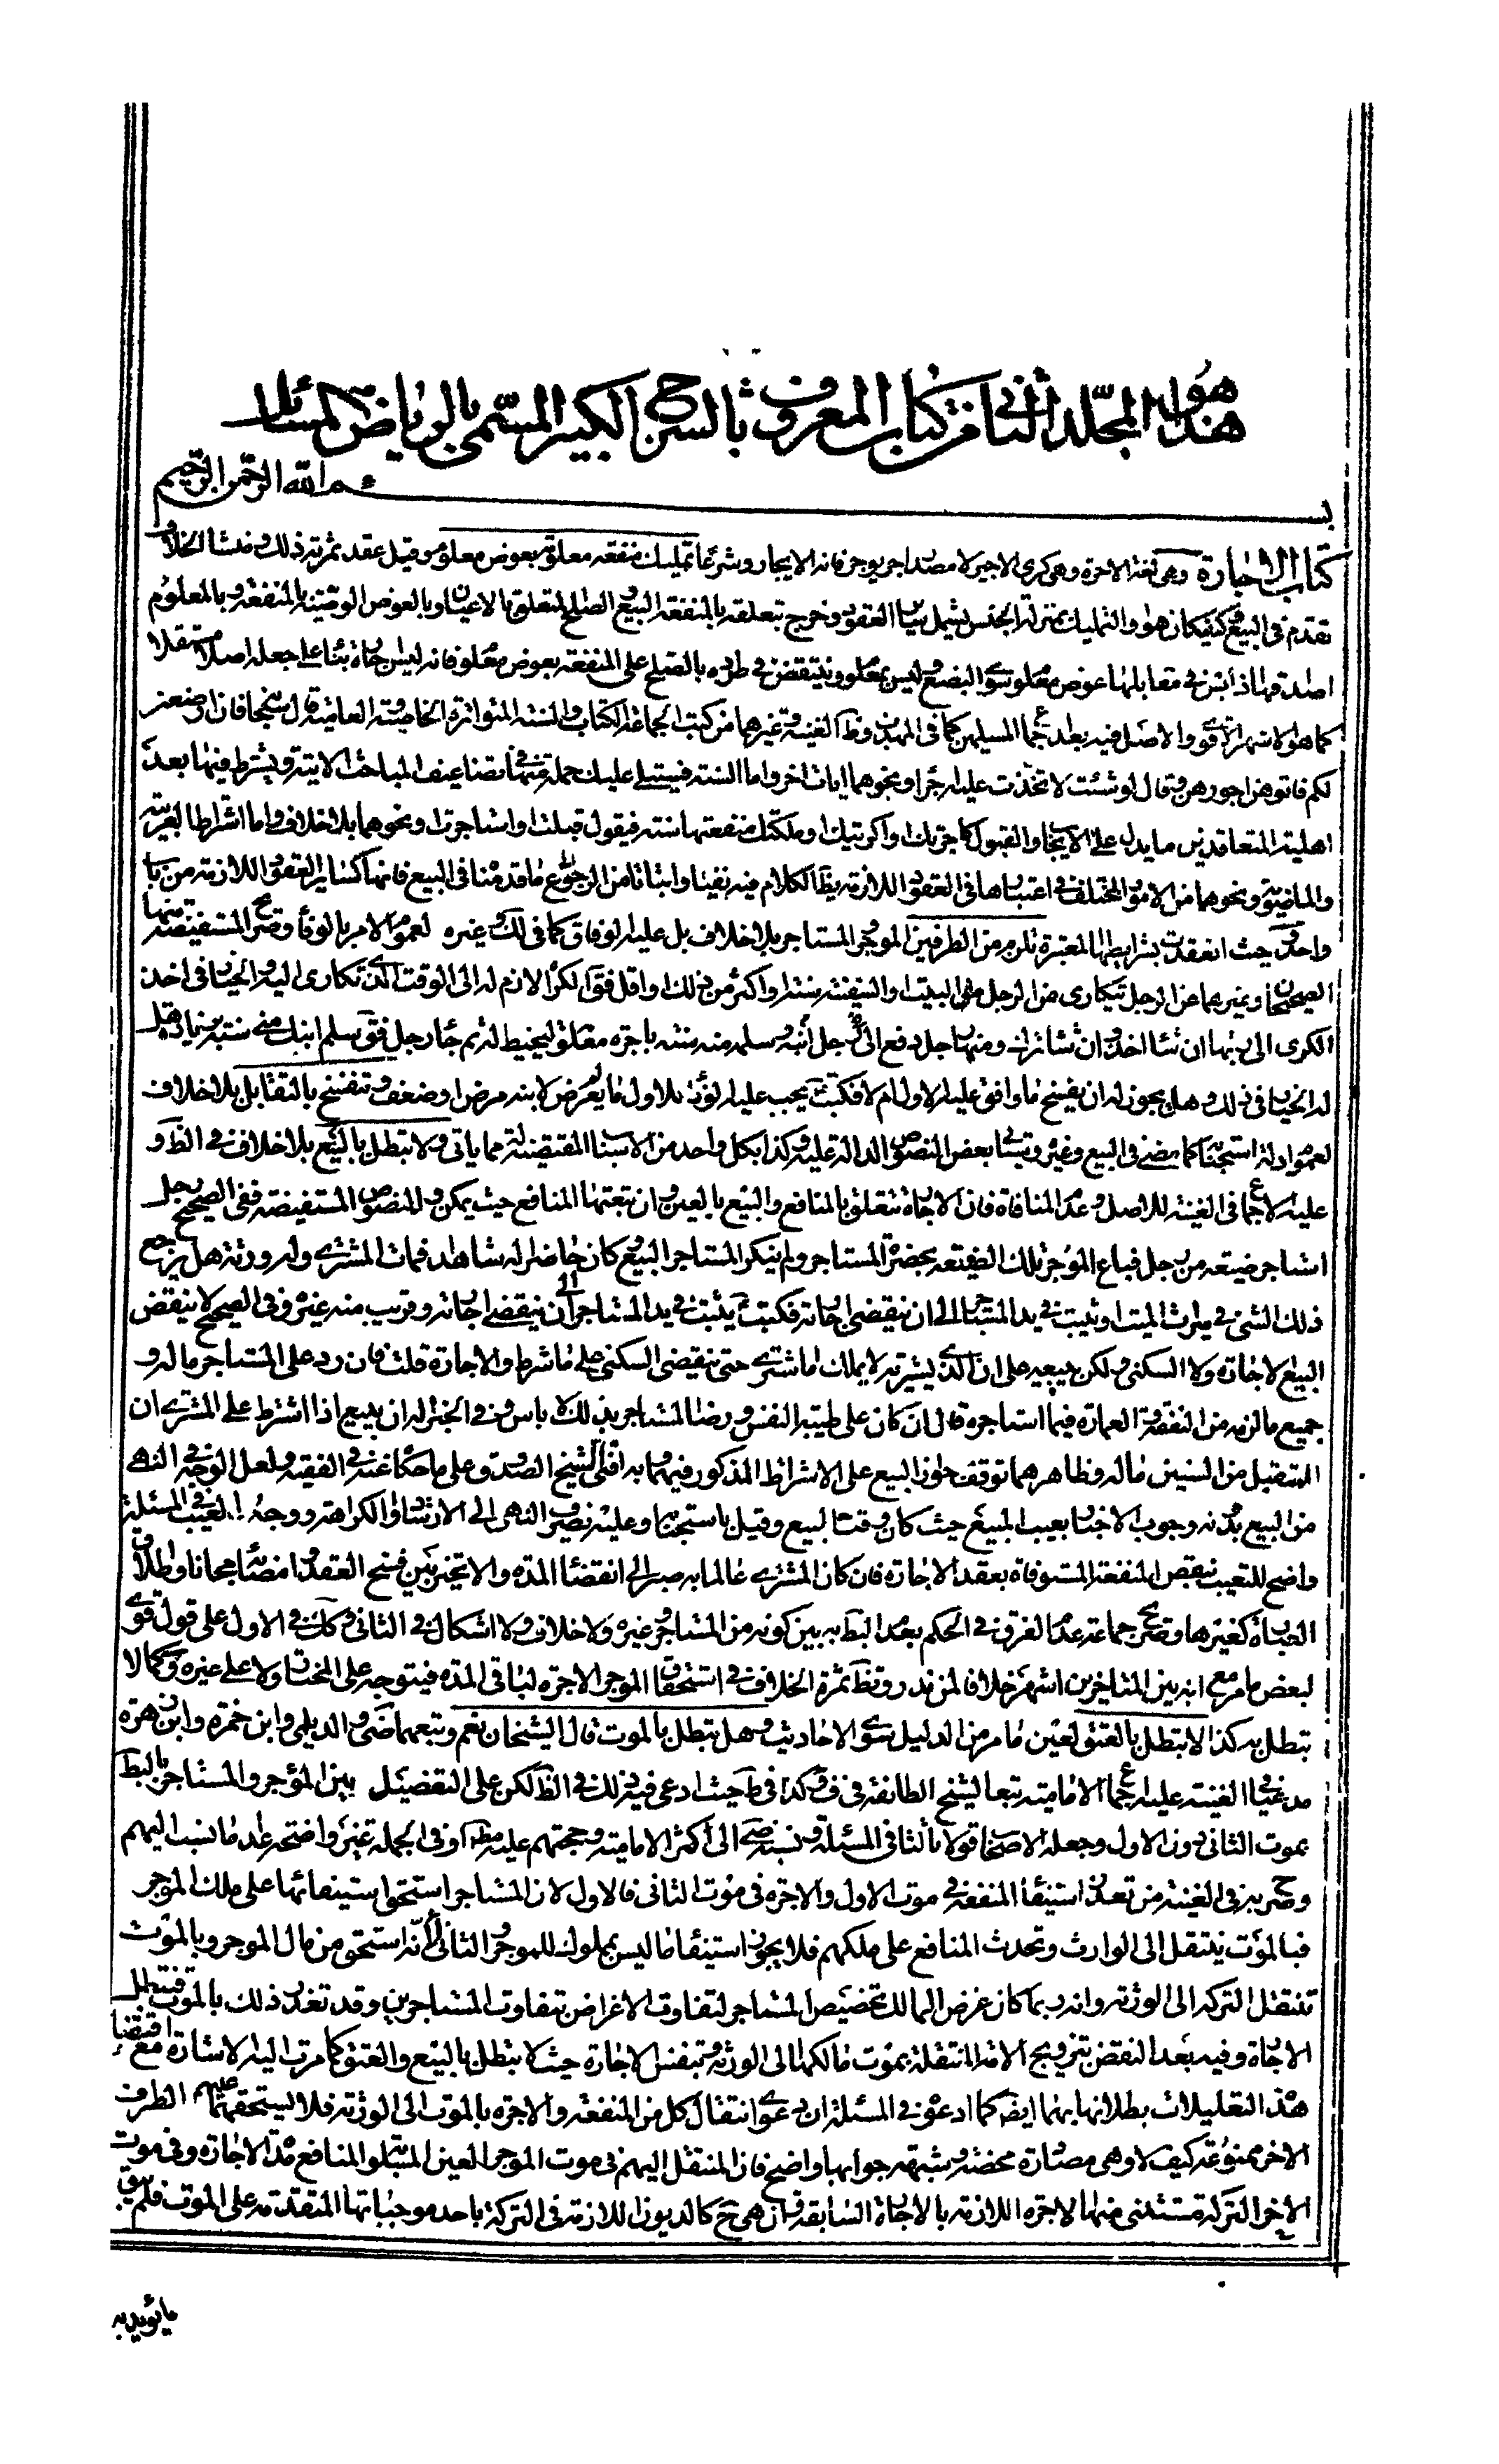 هو
هذا المجلد الثاني من كتاب المعروف بالشرح الكبير المسمى بالرياض المسائل
بسم الله الرحمن الرحيم
كتاب الاجارة وهى لغة الاجرة وهى كرى الاجير لا مصدر اجر يوجر فانه الايجار وشرعا تمليك منفعة معلومة بعوض معلوم وقيل عقد ثمرته ذلك ومنشا الخلاف
تقدم فى البيع وكيف كان هو او التمليك بمنزلة الجنس يشمل سائر العقود وخرج بتعلقه بالمنفعة البيع والصلح المتعلق بالاعيان وبالعوض الوصية بالمنفعة وبالمعلوم
اصداقها اذ ليس فى مقابلها عوض معلوم سوى البضع وليس بمعلوم وينتقض فى طرده بالصلح على المنفعة بعوض معلوم فانه ليس اجارة بناء على جعله اصلا مستقلا
كما هو الاشهر الاقوى والاصل فيه بعد اجماع المسلمين كما فى المهذب وظ الغنية وغيرهما من كتب الجماعة الكتاب والسنة المتواترة الخاصية والعامية قال سبحانه فان ارضعن
لكم فاتوهن اجورهن وقال لو شئت لاتخذت عليه اجرا ونحوهما ايات اخر واما السنة فسيتلى عليك جملة منها فى تضاعيف المباحث الاتية ويشترط فيها بعد
اهلية المتعاقدين ما يدل على الايجاب والقبول كاجرتك واكريتك او ملكتك منفعتها سنة فيقول قبلت واستاجرت ونحوهما بلا خلاف واما اشتراط العربية
والماضية ونحوهما من الامور المختلف فى اعتبارها فى العقود اللازمة يظ الكلام فيه نفيا واثباتا من الرجوع الى ما قدمنا فى البيع فانها كسائر العقود اللازمة من باب
واحد وحيث انعقدت بشرايطها المعتبرة تلزم من الطرفين الموجر والمستاجر بلا خلاف بل عليه الوفاق كما فى لك وغيره لعموم الامر بالوفاء وصريح المستفيضة منها
الصحيحان وغيرهما عن الرجل يتكارى من الرجل البيت او السفينة سنة او اكثر من ذلك او اقل فق الكراء لازم له الى الوقت الذى تكارى اليه والخيار فى اخذ
الكرى الى ربها ان شاء اخذ وان شاء ترك ومنها رجل دفع الى رجل ابنه وسلمه منه سنة باجرة معلومة ليخيط له ثم جاء رجل فق سلم ابنك منى سنة بزيادة هل
له الخيار فى ذلك وهل يجوز له ان يفسخ ما وافق عليه الاول ام لا فكتب يجب عليه الوفاء للاول ما لم يعرض لابنه مرض او ضعف وتنفسخ بالتقايل بلا خلاف
لعموم ادلة استحبابه كما مضى فى البيع وغيره وتبادر بعض النصوص الدالة عليه وكذا بكل واحد من الاسباب المقتضية له مما ياتى ولا تبطل بالبيع بلا خلاف فى الظ و
عليه الاجماع فى الغنية للاصل وعدم المنافاة فان الاجارة تتعلق بالمنافع والبيع بالعين وان تبعتها المنافع حيث يمكن والنصوص المستفيضة ففى الصحيح رجل
استاجر ضيعة من رجل فباع الموجر تلك الضيعة بحضرة المستاجر ولم ينكر المستاجر البيع وكان حاضرا له شاهدا فمات المشترى وله ورثة هل يرجع
ذلك الشئ فى ميراث الميت او يثبت فى يد المستاجر الى ان تنقضى اجارته فكتب يثبت فى يد المستاجر الى ان تنقضى اجارته وقريب منه غيره وفى الصحيح لا ينقض
البيع الاجارة ولا السكنى ولكن يبيعه على ان الذى يشتريه لا يملك ما اشترى حتى تنقضى السكنى على ما شرط والاجارة قلت فان رد على المستاجر ماله و
جميع ما لزمه من النفقة والعمارة فيما استاجره قال ان كان على طيبة النفس ورضا المستاجر بذلك لا باس وفى الخبر له ان يبيع اذا اشترط على المشترى ان
المتقبل من السنين ما له وظاهرهما توقف جواز البيع على الاشتراط المذكور فيهما وبه افتى الشيخ الصدوق على ما حكاه عنه فى الفقيه ولعل الوجه فى النهى
من البيع بدونه وجوب الاخبار بعيب المبيع حيث كان وقت البيع وقيل باستحبابه وعليه يصرف النهى الى الارشاد او الكراهة ووجه العيب فى المسئلة
واضح للتعيب بنقص المنفعة المستوفاة بعقد الاجارة فان كان المشترى عالما به صبر الى انقضاء المدة والا تخير بين فسخ العقد وامضائه مجانا واطلاق
العبارة كغيرها وصريح جماعة عدم الفرق فى الحكم بعدم البط به بين كونه من المستاجر وغيره ولا خلاف ولا اشكال فى الثانى وكك فى الاول على قول قوى
لبعض ما مر مع انه بين المتاخرين اشهر خلافا لمن ندر وتظ ثمرة الخلاف فى استحقاق الموجر الاجرة لباقى المدة فيتوجه على المختار ولا على غيره وكما لا
تبطل به كذا لا تبطل بالعتق لعين ما مر من الدليل سوى الاحاديث وهل تبطل بالموت قال الشيخان نعم وتبعهما ضى والديلمى وابن حمزة وابن زهرة
مدعيا فى الغنية عليه اجماع الامامية تبعا لشيخ الطائفة فى ف وكذا فى ط حيث ادعى فيه ذلك فى الظ لكن على التفصيل بين المؤجر والمستاجر بالبط
بموت الثانى دون الاول وجعله الاصحاب قولا ثالثا فى المسئلة ونسبه ضى الى اكثر الامامية وحجتهم عليه مط او فى الجملة غير واضحة عدا ما نسب اليهم
وصرح به فى الغنية من تعذر استيفاء المنفعة فى موت الاول والاجرة فى موت الثانى فالاول لان المستاجر استحق استيفائها على ملك الموجر
فبالموت ينتقل الى الوارث وتحدث المنافع على ملكهم فلا يجوز استيفاء ما ليس بمملوك للموجر والثانى لانه استحق من مال الموجر وبالموت
تنتقل التركة الى الورثة وانه ربما كان غرض المالك تخصيص المستاجر لتفاوت الاغراض بتفاوت المستاجرين وقد تعذر ذلك بالموت فتبطل
الاجارة وفيه بعد النقض بتزويج الامة المنتقلة بموت مالكها الى الورثة وبنفس الاجارة حيث لا تبطل بالبيع والعتق كما مرت اليه الاشارة مع اقتضاء
هذه التعليلات بطلانها بهما ايضا كما ادعوه فى المسئلة ان دعوى انتقال كل من المنفعة والاجرة بالموت الى الورثة فلا يستحقهما عليهم الطرف
الاخر ممنوعة كيف لا وهى مصادرة محضة وشبهة جوابها واضح فان المنتقل اليهم فى موت الموجر العين المسلوبة المنافع مدة الاجارة وفى موت
الاخر التركة مستثنى منها الاجرة اللازمة بالاجارة السابقة فان هى ح كالديون اللازمة فى التركة باحد موجباتها المتقدمة على الموت فلم يبق
ما يؤيد به